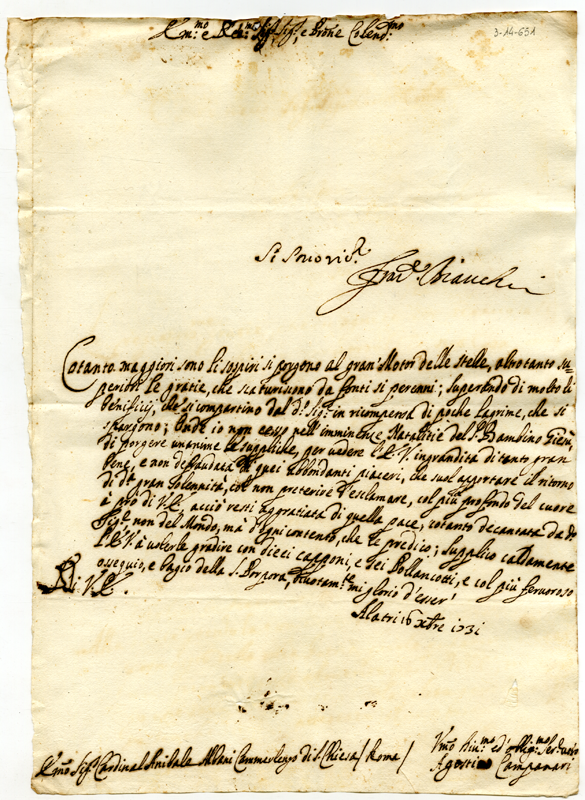 Em:mo e Rev:mo Sig.r Sig.r, e Prone Colend:mo
3-14-651
Si Scrovid.e
Bianchi
Cotanto maggiori sono li sospiri si porgono al gran Motor delle stelle, altrotanto su=
periori le gratie, che scaturisono da fonti si perenni; superando di molto li
benifitij, che si compartino dal d.o Sig.re in ricompensa di poche lagrime, che si
spargono; Onde io non cesso nell'imminense Natalitie del S. Bambino Giesù
di porgere unanime le suppliche, per vedere l'E.V. ingrandita di tanto gran
bene, e non defraudata di quei abbondanti piaceri, che suol apportare il ritorno
di d.a gran solennità, col non preterire d'esclamare, col più profondo del cuore
à prò di V.E. acciò resti aggratiata di quella pace, cotanto decantata da d.o
Sig.re non del Mondo, mà d'ogni contento, che le predico; supplico caldamente
l'E.V. à volerle gradire con dieci capponi, e sei Pollancotti, e col più fervoroso
ossequio, e bagio della S. Porpora, Divotam.te mi glorio d'esser'
Di V.E.
Alatri 16 Xbre 1731
Emo Sig.r Cardinal Anibale Albani Cammerlengo di S. Chiesa / Roma /
Vmo Diu.mo ed' Oblig.mo Ser.uo
Agostino Campanari